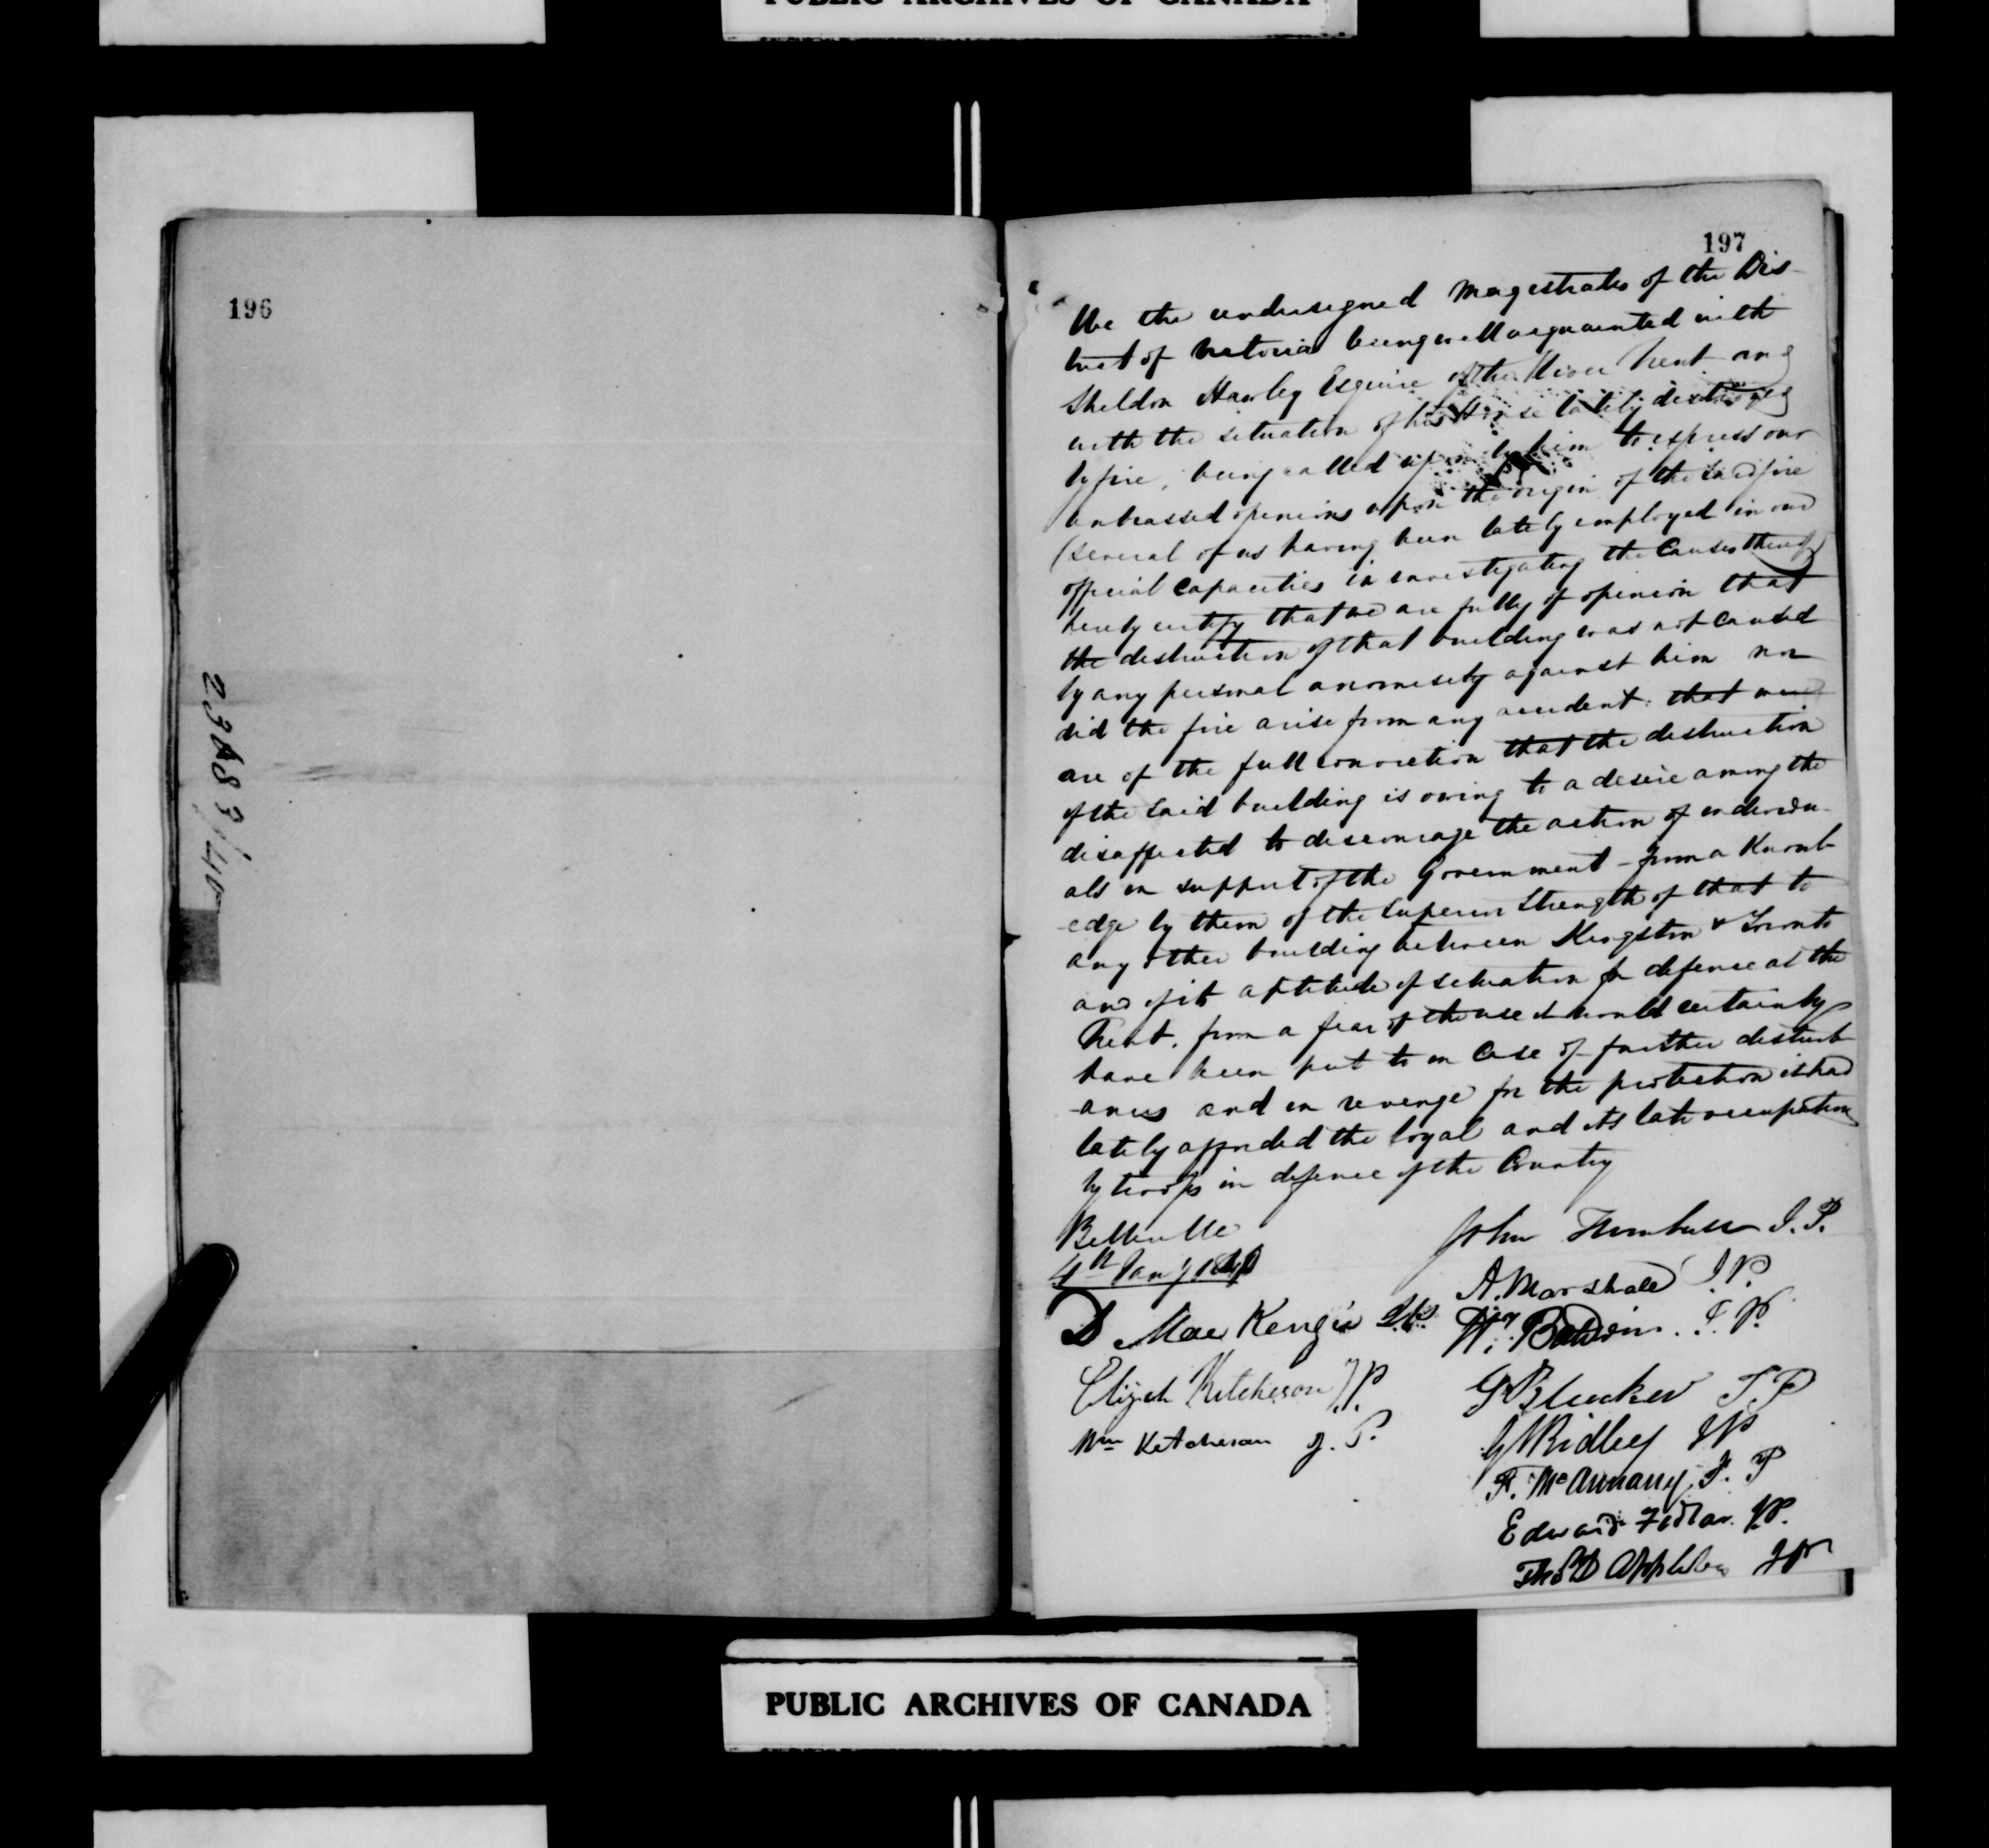 PUBLIC ARCHIVES OF CANADA
196
23 A 8 3/40
197
We the undersigned Magistrates of the Dis-
trict of Victoria being well acquainted with
Sheldon Hawley Esquire of the River Trent and
with the situation of his House lately destroyed
by fire, being called upon by him to express our
unbiassed opinions upon the origin of the said fire
(several of us having been lately employed in our
official Capacities in investigating the Causes thereof)
hereby certify that we are fully of opinion that
the destruction of that building was not caused
by any personal animosity against him nor
did the fire arise from any accident: that we
are of the full conviction that the destruction
of the said building is owing to a desire among the
disaffected to discourage the action of individu-
als in support of the Government - from a Knowl-
-edge by them of the superior strength of that to
any other building between Kingston & Toronto
and of its aptitude of situation for defence at the
Trent, from a fear of the use it would certainly
have been put to in Case of further disturb-
-ances and in revenge for the protection it had
lately afforded the loyal and its late occupation
by troops in defence of the Country
Belleville
4th Jany 1840
John Turnbull J.P.
A. Marshall J.P.
D MacKenzie J.P.
Wm Baldwin. J.P.
Elijah Ketcheson J.P.
G Bleecker J.P
Wm Ketcheson J.P.
G Ridley JP
F. McAnnany, J.P
Edward Fidlar. J.P.
Thos D Appleby JP
PUBLIC ARCHIVES OF CANADA